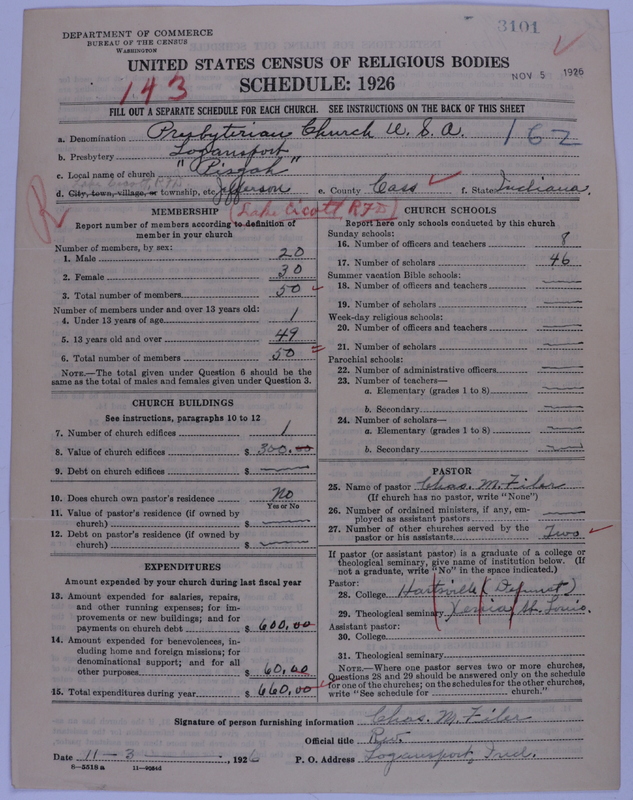 3101
DEPARTMENT OF COMMERCE
BUREAU OF THE CENSUS
WASHINGTON
UNITED STATES CENSUS OF RELIGIOUS BODIES
SCHEDULE: 1926
NOV 5 1926
143
FILL OUT A SEPARATE SCHEDULE FOR EACH CHURCH. SEE INSTRUCTIONS ON THE BACK OF THIS SHEET
a. Denomination Presbyterian Church U. S. A. 162
b. Presbytery Logansport
c. Local name of church "Pisgah"
Lake Cicott, R.F.D.
d. City, town, village, or township, etc. Jefferson e. County Cass f. State Indiana.
R
(Lake Cicott RFD)
MEMBERSHIP
Report number of members according to definition of member in your church
Number of members, by sex:
1. Male 20
2. Female 30
3. Total number of members 50
Number of members under and over 13 years old:
4. Under 13 years of age 1
5. 13 years old and over 49
6. Total number of members 50
NOTE.—The total given under Question 6 should be the
same as the total of males and females given under Question 3.
CHURCH BUILDINGS
See instructions, paragraphs 10 to 12
7. Number of church edifices 1
8. Value of church edifices $ 300.00
9. Debt on church edifices $
10. Does church own pastor's residence No
Yes or No
11. Value of pastor's residence (if owned by
church) $
12. Debt on pastor's residence (if owned by
church) $
EXPENDITURES
Amount expended by your church during last fiscal year
13. Amount expended for salaries, repairs,
and other running expenses; for im-
provements or new buildings; and for
payments on church debt $ 600.00
14. Amount expended for benevolences, in-
cluding home and foreign missions; for
denominational support; and for all
other purposes $ 60.00
15. Total expenditures during year $ 660.00
CHURCH SCHOOLS
Report here only schools conducted by this church
Sunday schools:
16. Number of officers and teachers 8
17. Number of scholars 46
Summer vacation Bible schools:
18. Number of officers and teachers
19. Number of scholars
Week-day religious schools:
20. Number of officers and teachers
21. Number of scholars
Parochial schools:
22. Number of administrative officers
23. Number of teachers—
a. Elementary (grades 1 to 8)
b. Secondary
24. Number of scholars—
a. Elementary (grades 1 to 8)
b. Secondary
PASTOR
25. Name of pastor Chas. M. Filer
(If church has no pastor, write "None")
26. Number of ordained ministers, if any, em-
ployed as assistant pastors
27. Number of other churches served by the
pastor or his assistants Two
If pastor (or assistant pastor) is a graduate of a college or
theological seminary, give name of institution below. (If
not a graduate, write "No" in the space indicated.)
Pastor:
28. College Hartsville (Defunct)
29. Theological seminary Xenia St. Louis.
Assistant pastor:
30. College
31. Theological seminary
NOTE.—Where one pastor serves two or more churches,
Questions 28 and 29 should be answered only on the schedule
for one of the churches; on the schedules for the other churches,
write "See schedule for church."
Signature of person furnishing information Chas. M. Filer
Official title Rev.
Date 11-3, 1926 P. O. Address Logansport, Ind.
8-5518 a 11-9054d